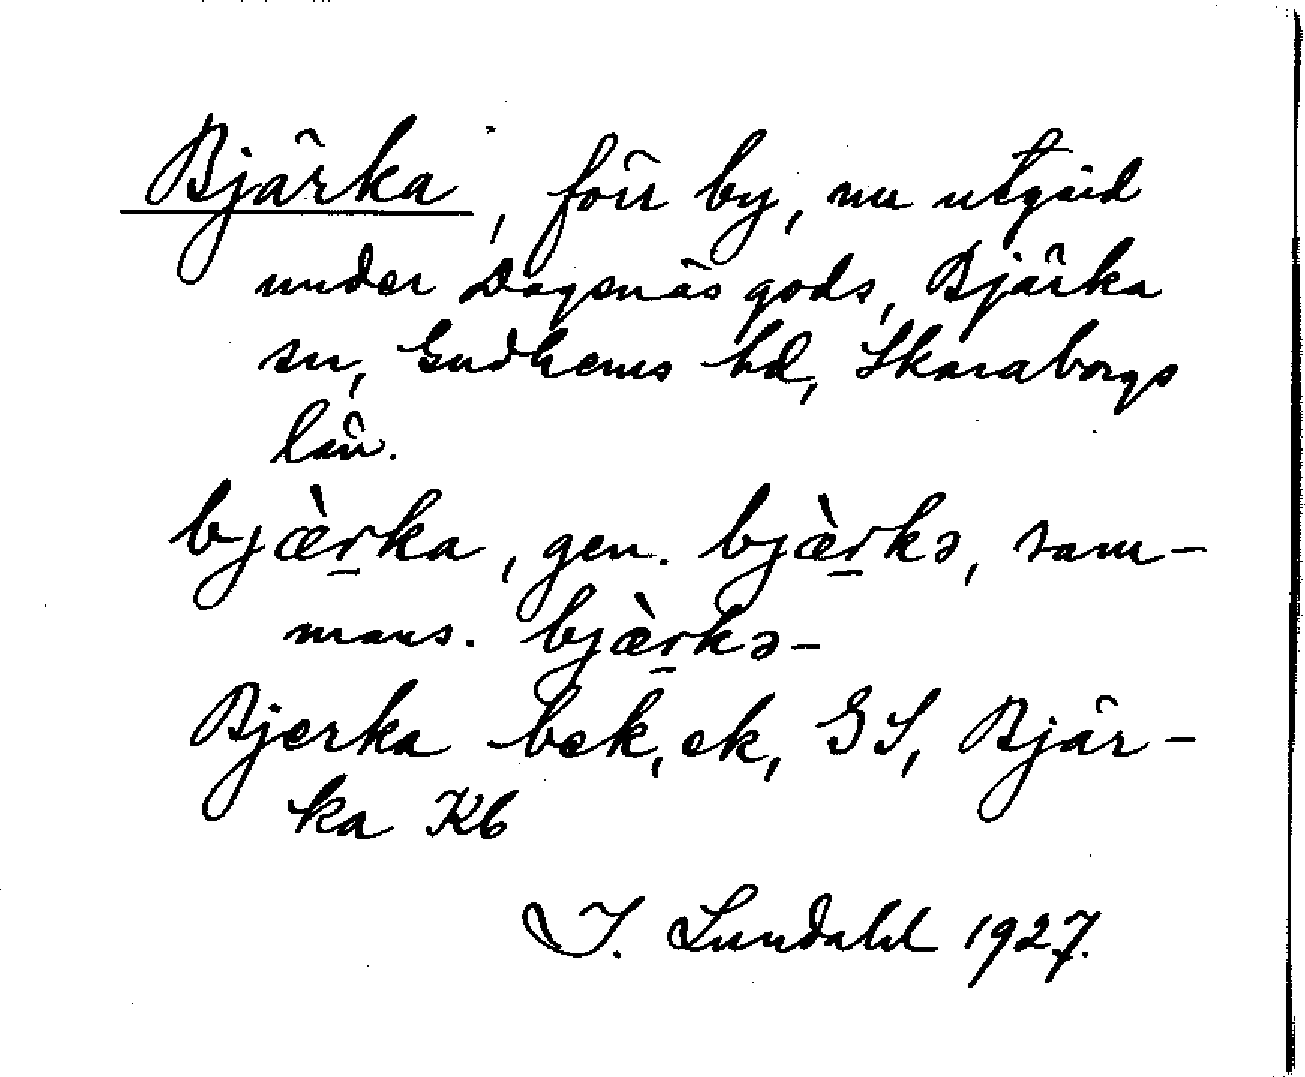 Bjärka, förr by, nu utgård
under Dagsnäs gods, Bjärka
sn, Gudhems hd, Skaraborgs
län.
bjæ̀r̲ka, gen. bjæ̀r̲kə, sam-
mans. bjæ̀r̲kə-
Bjerka bek, ek, GS, Bjär-
ka Kb
I. Lundahl 1927.